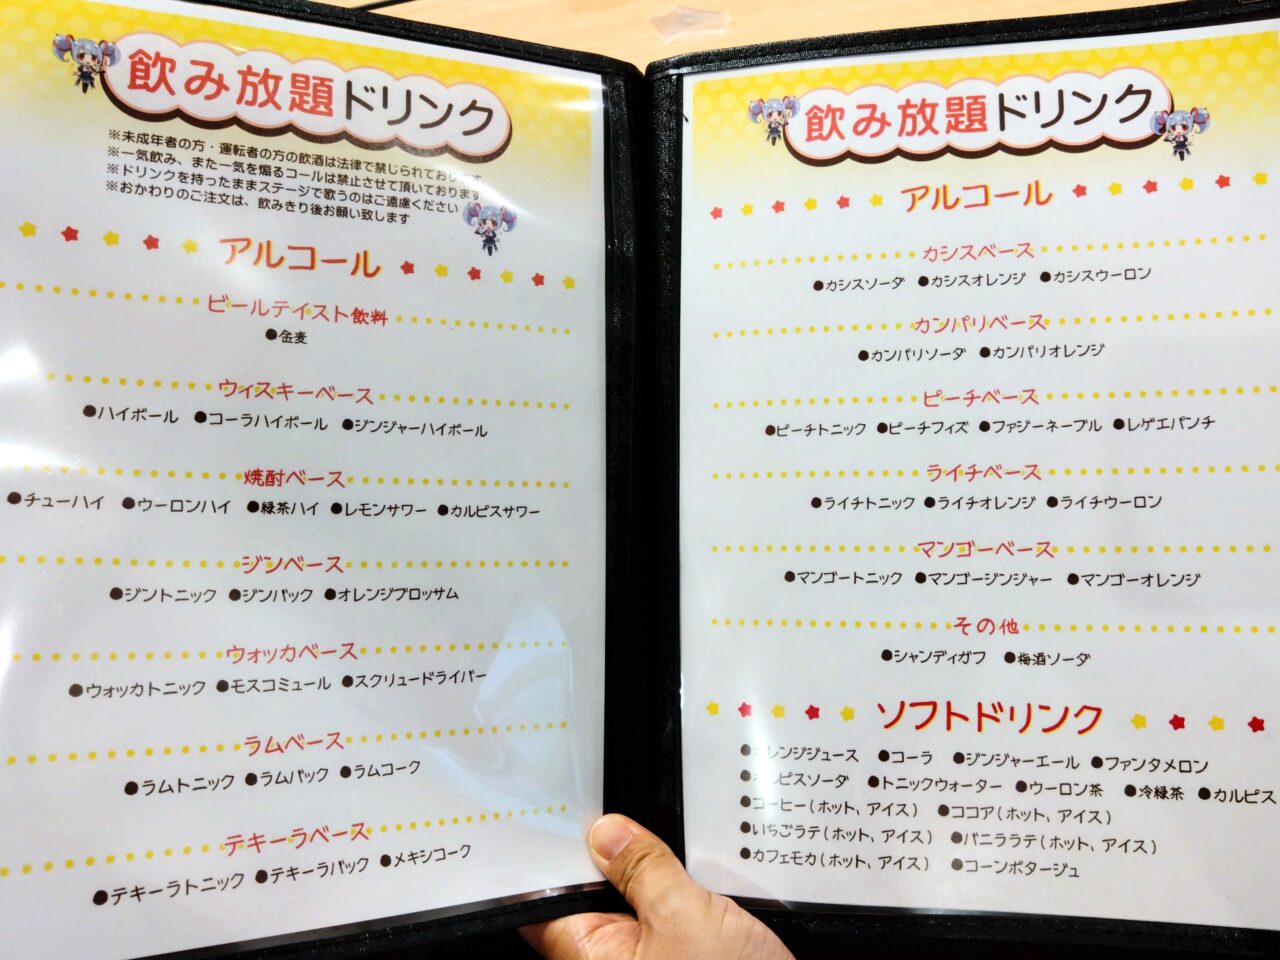 飲み放題ドリンク
※未成年者の方・運転者の方の飲酒は法律で禁じられております
※一気飲み、また一気を煽るコールは禁止させて頂いております
※ドリンクを持ったままステージで歌うのはご遠慮ください
※おかわりのご注文は、飲みきり後お願い致します
アルコール
ビールテイスト飲料
●金麦
ウィスキーベース
●ハイボール ●コーラハイボール ●ジンジャーハイボール
焼酎ベース
●チューハイ ●ウーロンハイ ●緑茶ハイ ●レモンサワー ●カルピスサワー
ジンベース
●ジントニック ●ジンバック ●オレンジブロッサム
ウォッカベース
●ウォッカトニック ●モスコミュール ●スクリュードライバー
ラムベース
●ラムトニック ●ラムバック ●ラムコーク
テキーラベース
●テキーラトニック ●テキーラバック ●メキシコーク
飲み放題ドリンク
アルコール
カシスベース
●カシスソーダ ●カシスオレンジ ●カシスウーロン
カンパリベース
●カンパリソーダ ●カンパリオレンジ
ピーチベース
●ピーチトニック ●ピーチフィズ ●ファジーネーブル ●レゲエパンチ
ライチベース
●ライチトニック ●ライチオレンジ ●ライチウーロン
マンゴーベース
●マンゴートニック ●マンゴージンジャー ●マンゴーオレンジ
その他
●シャンディガフ ●梅酒ソーダ
ソフトドリンク
●オレンジジュース ●コーラ ●ジンジャーエール ●ファンタメロン
●カルピスソーダ ●トニックウォーター ●ウーロン茶 ●冷緑茶 ●カルピス
●コーヒー(ホット、アイス) ●ココア(ホット、アイス)
●いちごラテ(ホット、アイス) ●バニララテ(ホット、アイス)
●カフェモカ(ホット、アイス) ●コーンポタージュ